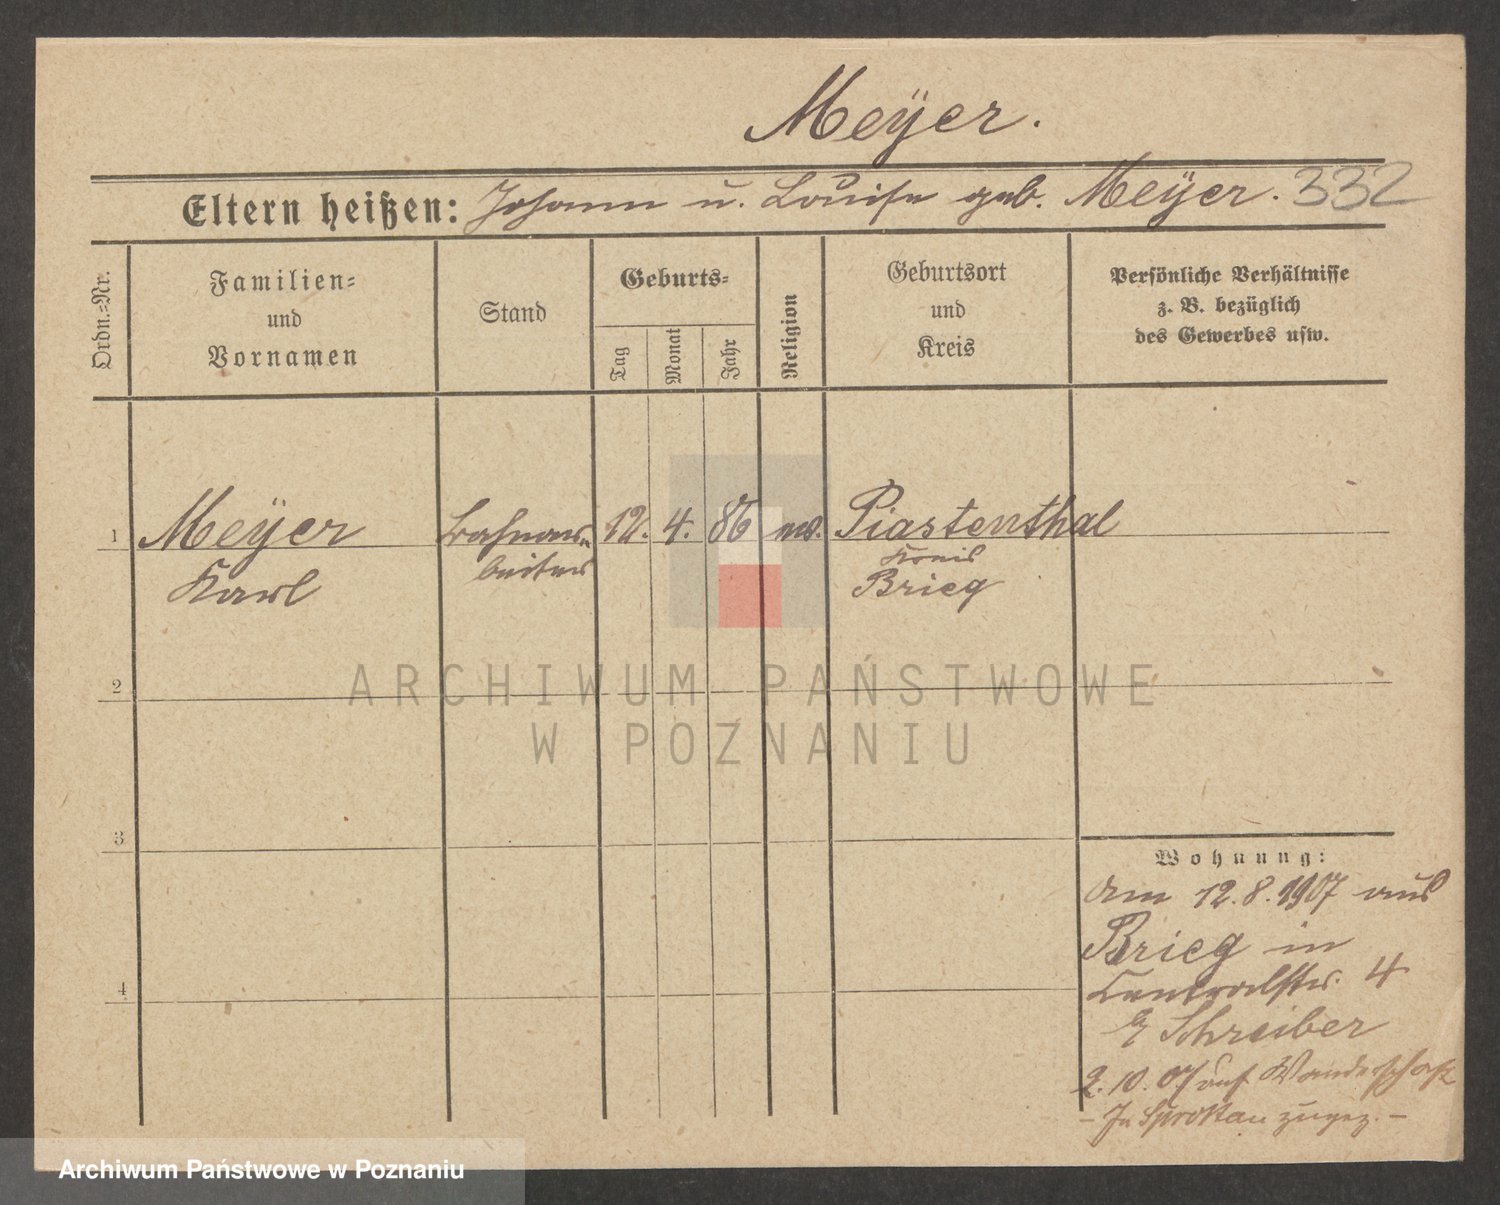 Meÿer.
Eltern heißen: Johann u. Louise geb. Meÿer. 332
Ordn.=Nr.
Familien=
und
Vornamen
Stand
Geburts=
Tag
Monat
Jahr
Religion
Geburtsort
und
Kreis
Persönliche Verhältnisse
z. B. bezüglich
des Gewerbes usw.
1 Meÿer Bahnar= 12. 4. 86 Piastenthal
Karl beiter Kreis
Brieg
2
ARCHIWUM PAŃSTWOWE
W POZNANIU
3
Wohnung:
Am 12.8.1907 aus
Brieg in
Centralstr. 4
b/ Schreiber
2.10.07 auf Wanderschaft
– In Sprottau zugez. –
4
Archiwum Państwowe w Poznaniu